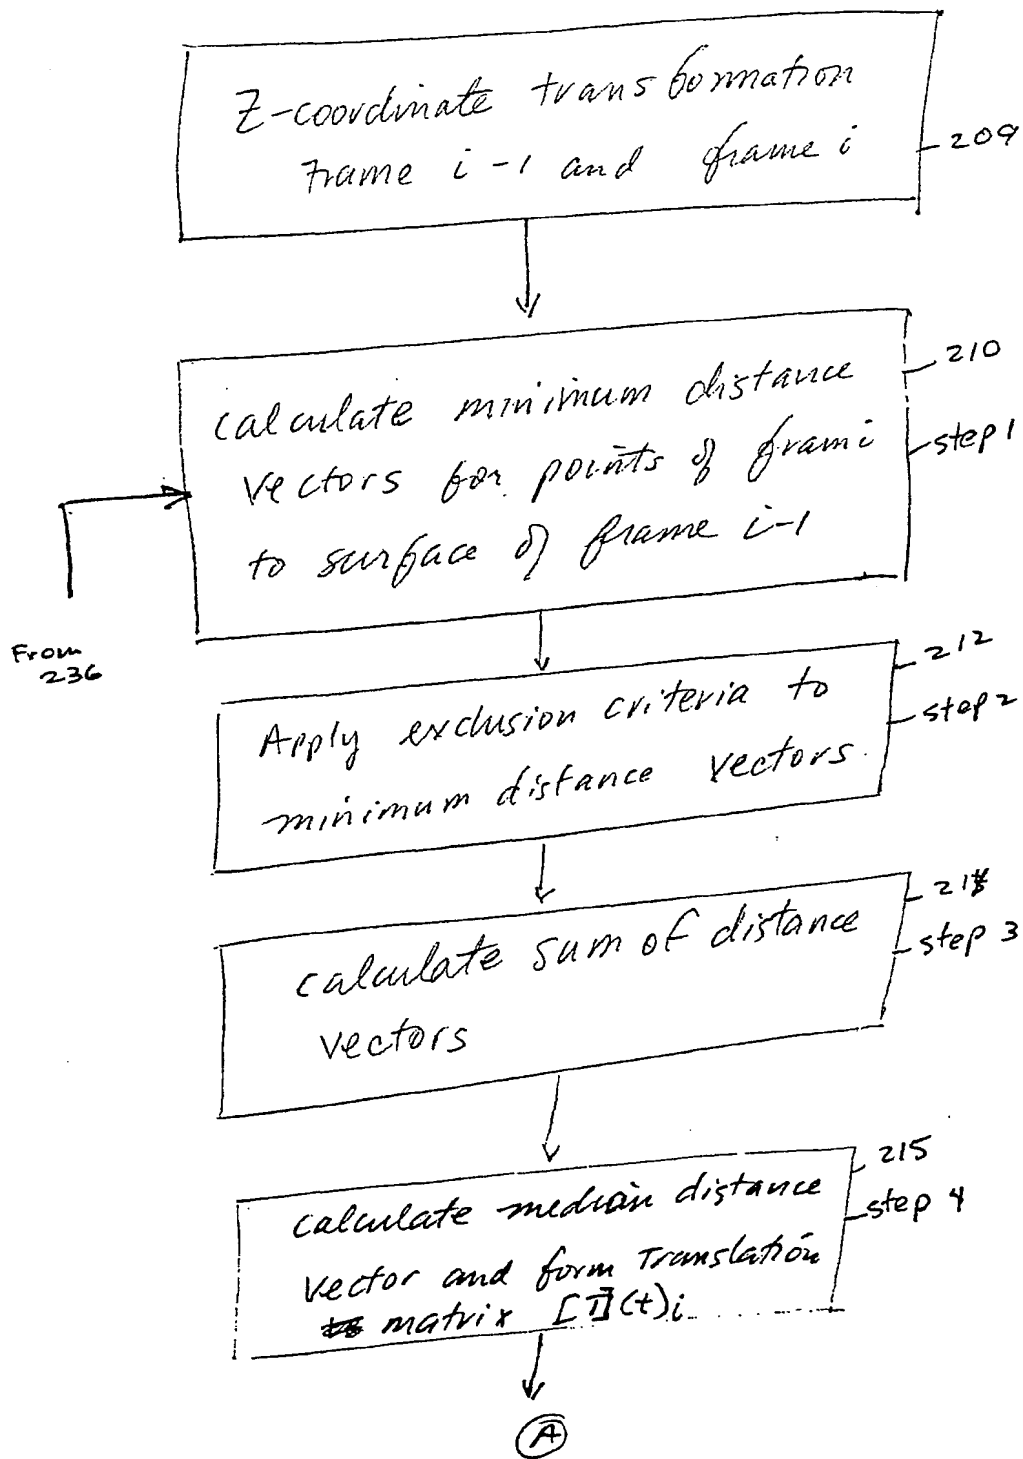 Z-coordinate transformation
Frame i-1 and frame i
209
210
calculate minimum distance
vectors for points of frami
to surface of frame i-1
step 1
From
236
212
Apply exclusion criteria to
minimum distance vectors.
step 2
calculate sum of distance
vectors
step 3
215
calculate median distance
vector and form Translation
matrix (t)i
step 4
A